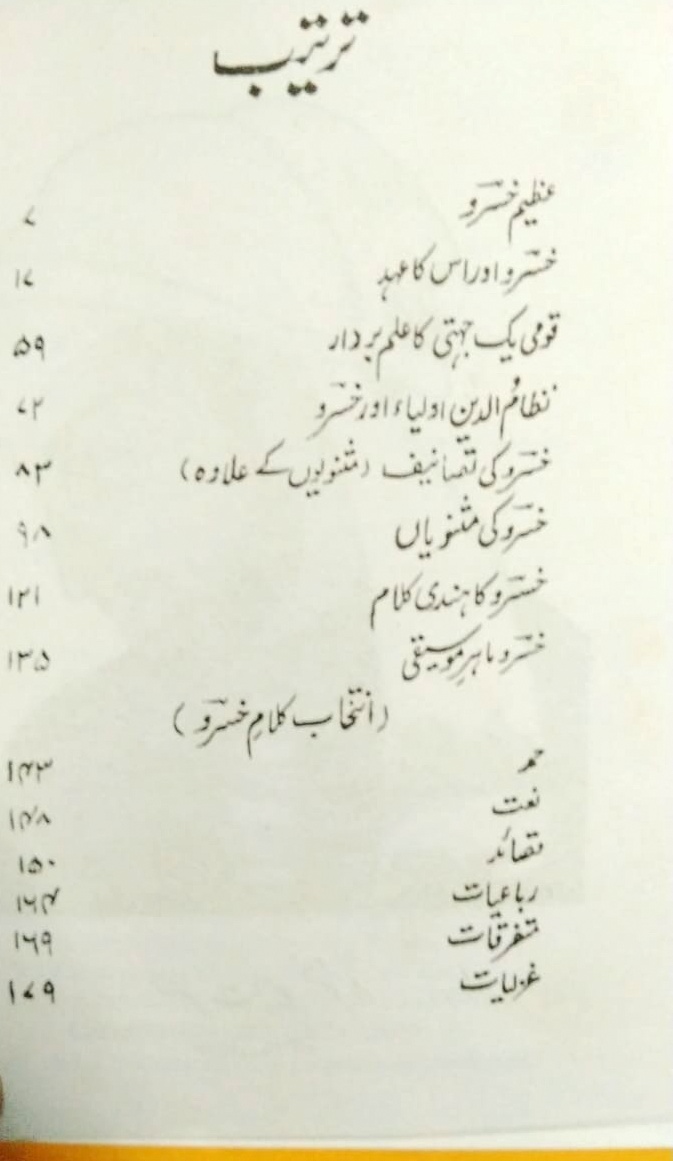 ترتیب
عظیم خسرؔو ۷
خسرؔو اور اس کا عہد ۱۷
قومی یک جہتی کا علم بردار ۵۹
نظامُ الدین اولیاء اور خسرؔو ۷۲
خسرؔو کی تصانیف (مثنویوں کے علاوہ) ۸۳
خسرؔو کی مثنویاں ۹۸
خسرؔو کا ہندی کلام ۱۲۱
خسرؔو ماہرِ موسیقی ۱۳۵
(انتخاب کلامِ خسرؔو)
حمد ۱۴۳
نعت ۱۴۸
قصائد ۱۵۰
رباعیات ۱۶۴
متفرقات ۱۶۹
غزلیات ۱۷۹